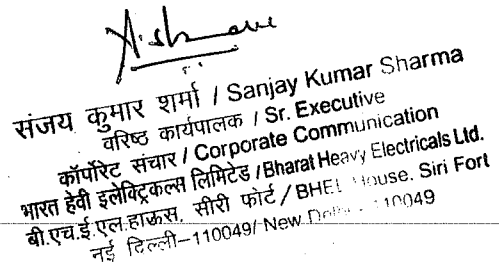 संजय कुमार शर्मा / Sanjay Kumar Sharma
वरिष्ठ कार्यपालक / Sr. Executive
कॉर्पोरेट संचार / Corporate Communication
भारत हेवी इलेक्ट्रिकल्स लिमिटेड / Bharat Heavy Electricals Ltd.
बी.एच.ई.एल.हाऊस, सीरी फोर्ट / BHEL House, Siri Fort
नई दिल्ली-110049/ New Delhi - 110049